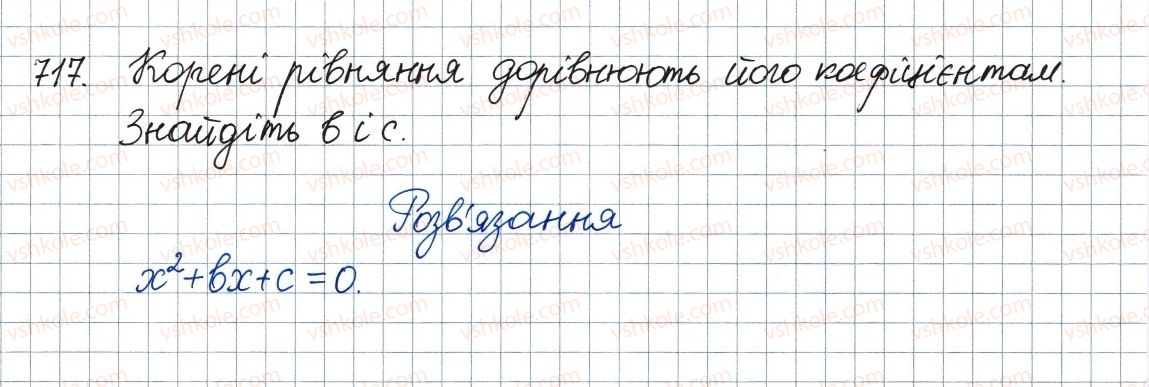 717. Корені рівняння дорівнюють його коефіцієнтам.
Знайдіть в і с.
Розв'язання
x²+вx+c=0.